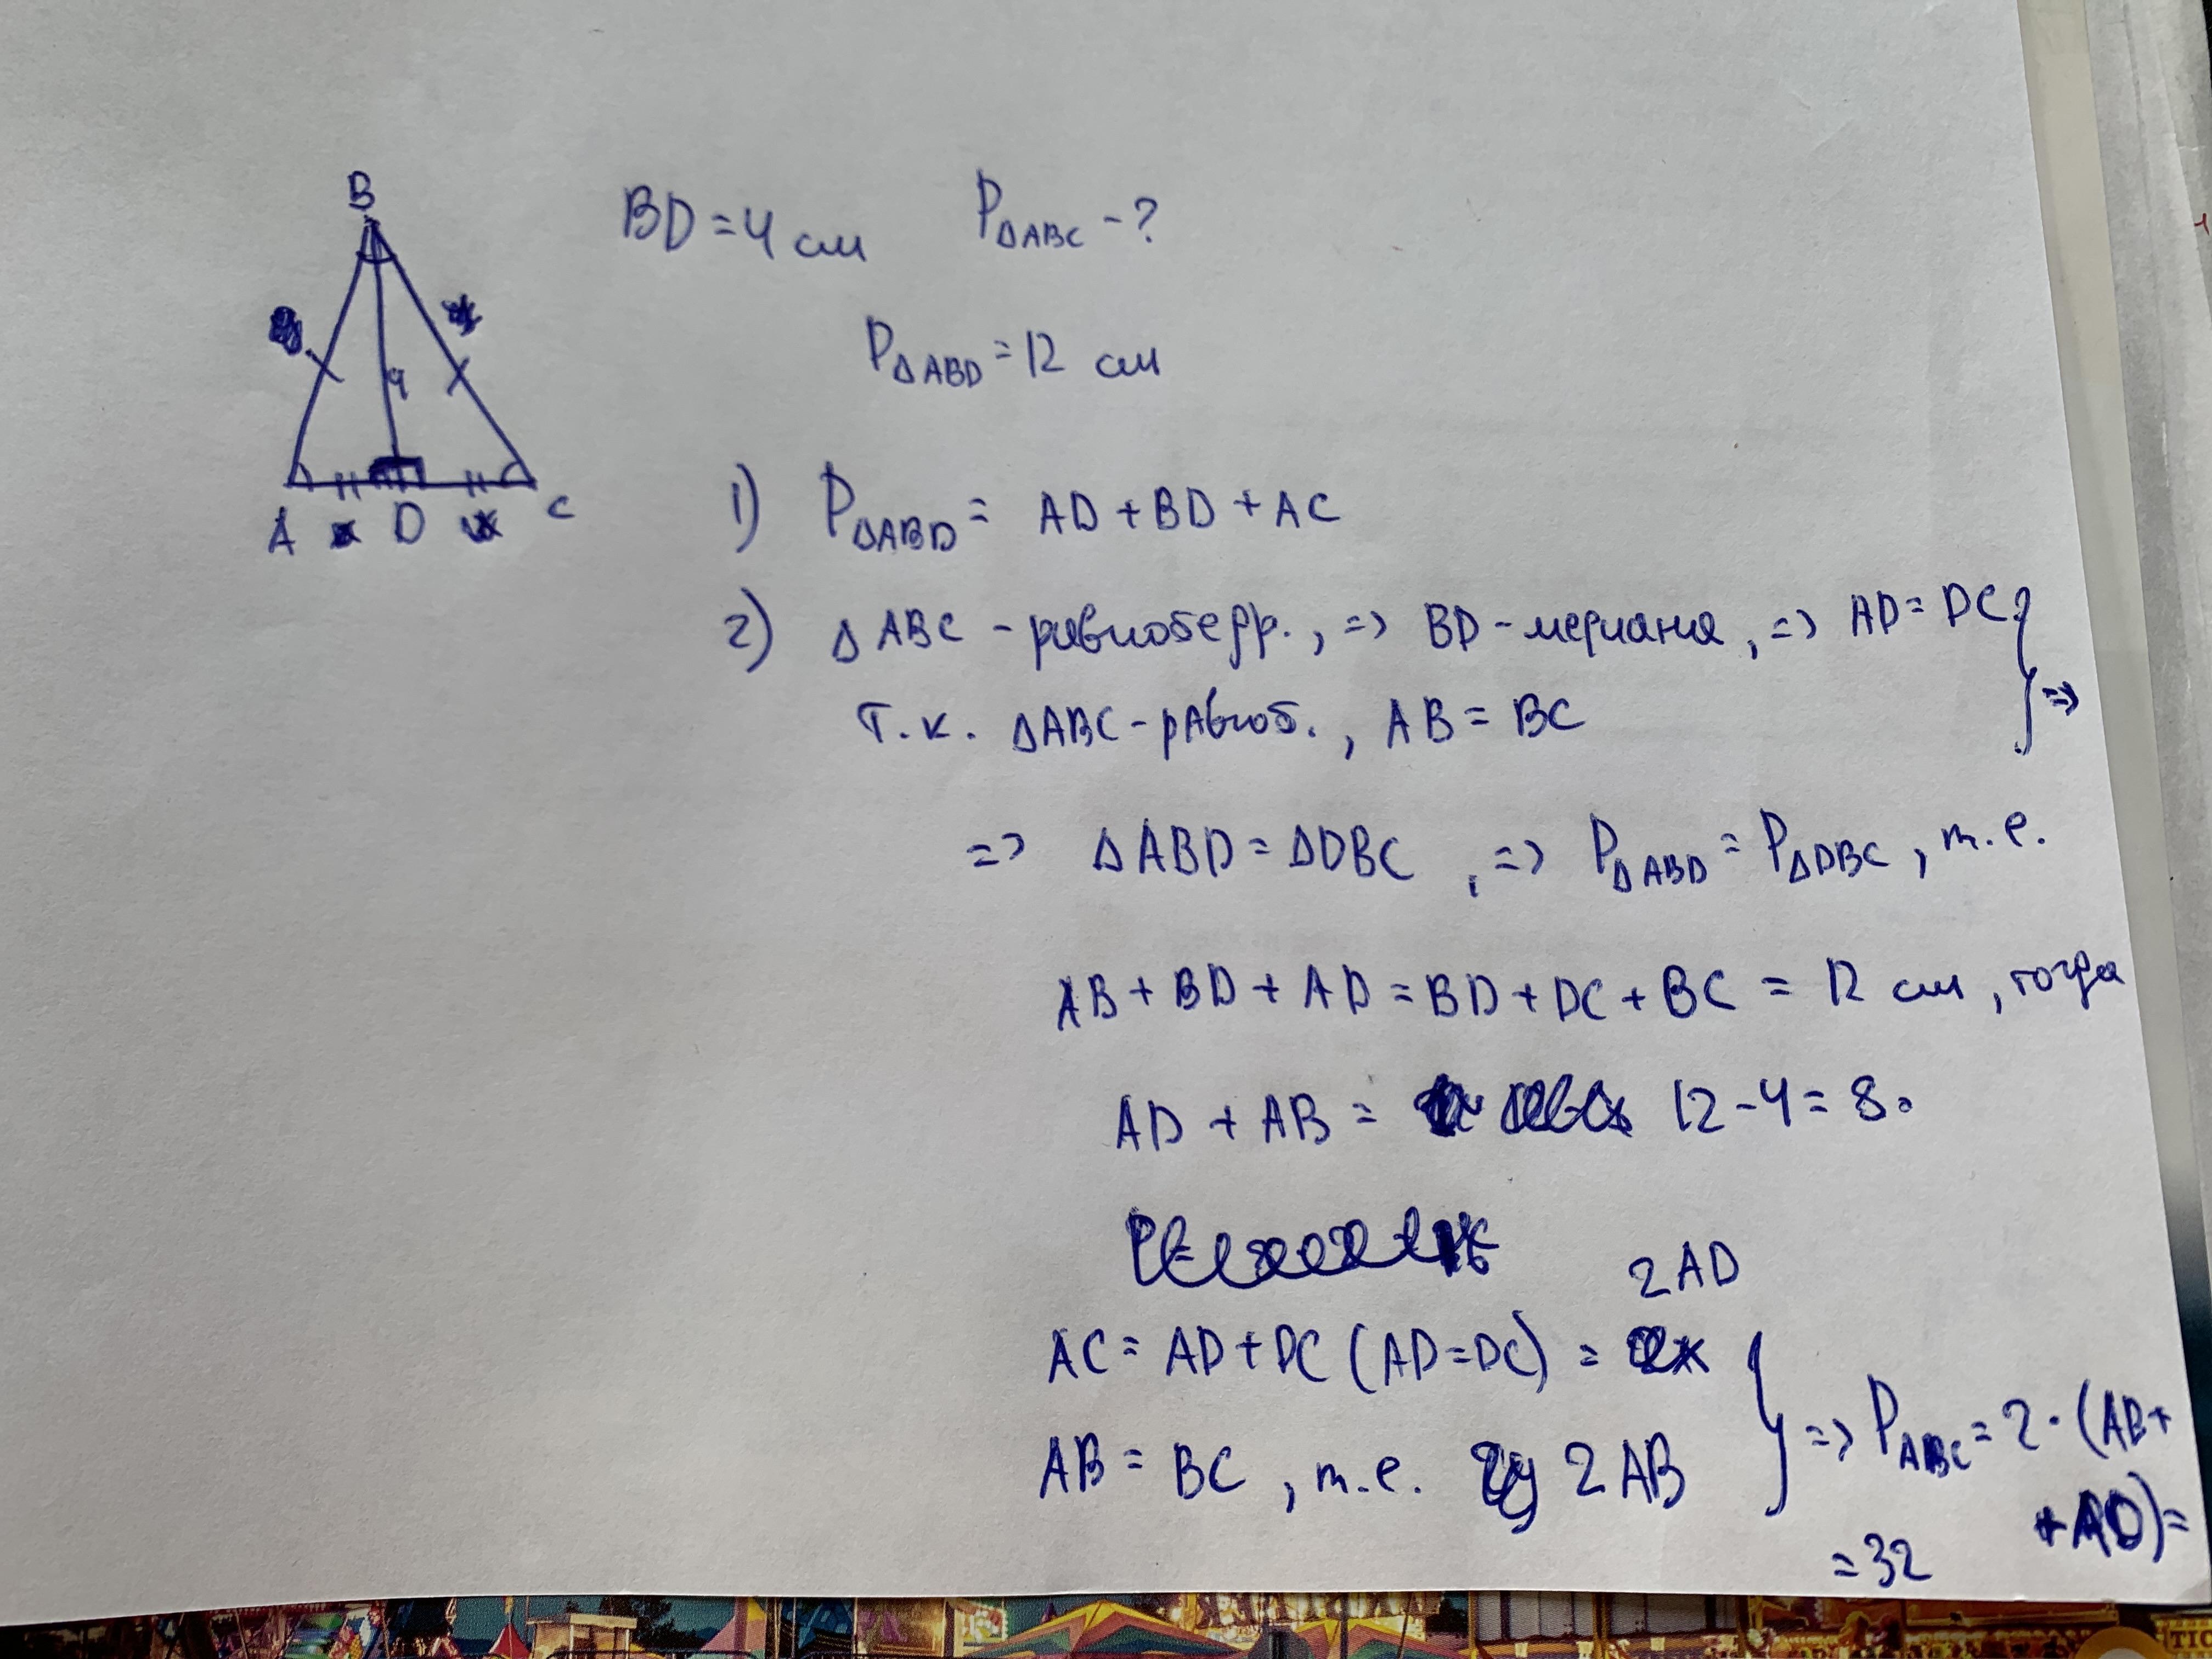 B
BD = 4 см P△ABC - ?
P△ABD = 12 см
4
A D C
1) P△ABD = AD + BD + AC
2) △ABC - равнобедр., => BD - медиана, => AD = DC } =>
Т.к. △ABC - равноб., AB = BC
=> △ABD = △DBC, => P△ABD = P△DBC, т.е.
AB + BD + AD = BD + DC + BC = 12 см, тогда
AD + AB = 12 - 4 = 8.
2AD
AC = AD + DC (AD = DC) =
AB = BC, т.е. 2AB } => PABC = 2 · (AB +
+ AD) =
= 32
TIC